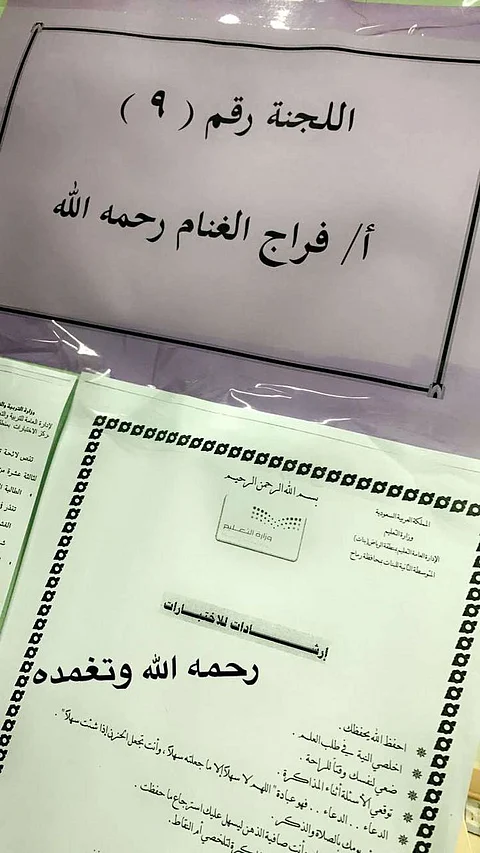 اللجنة رقم ( ٩ )
أ/ فراج الغنام رحمه الله
بسم الله الرحمن الرحيم
المملكة العربية السعودية
وزارة التعليم
الإدارة العامة للتعليم بمنطقة الرياض (بنات)
المتوسطة الثانية للبنات بمحافظة رماح
وزارة التعليم
إرشادات للاختبارات
رحمه الله وتغمده
احفظ الله يحفظك .
اخلصي النية في طلب العلم .
ضعي لنفسك وقتاً للراحة .
توقعي الأسئلة أثناء المذاكرة .
الدعاء . . الدعاء . . فهو عبادة " اللهم لا سهلاً إلا ما جعلته سهلاً ، وأنت تجعل الحزن إذا شئت سهلاً " .
يومك بالصلاة والذكر .
وأنت صافية الذهن ليسهل عليك استرجاع ما حفظت .